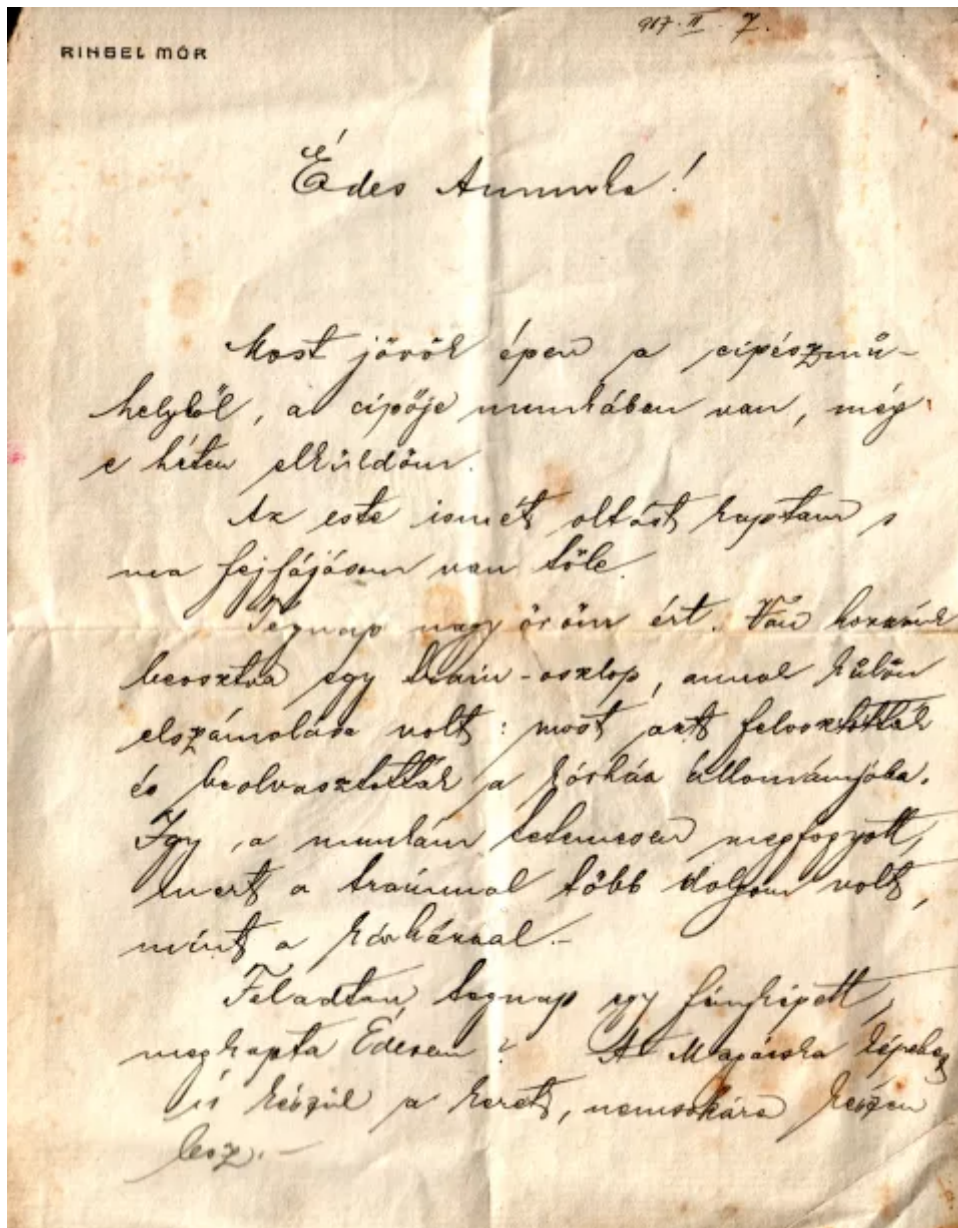 917. II. 7.
RINGEL MÓR
Édes Annuska!
Most jövök épen a cipészmű-
helyből, a cipője munkában van, még
e héten elküldöm.
Az este ismét oltást kaptam s
ma fejfájásom van tőle.
Tegnap nagy öröm ért. Van hozzánk
beosztva egy train-oszlop, annak külön
elszámolása volt: most azt feloszlották
és beolvasztották a kórház állományába.
Igy, a munkám tetemesen megfogyott,
mert a trainnal több dolgom volt,
mint a kórházzal.-
Feladtam tegnap egy fényképett,
megkapta Édesem? A Magácska képéhez
is készül a keret, nemsokára készen
lesz.-